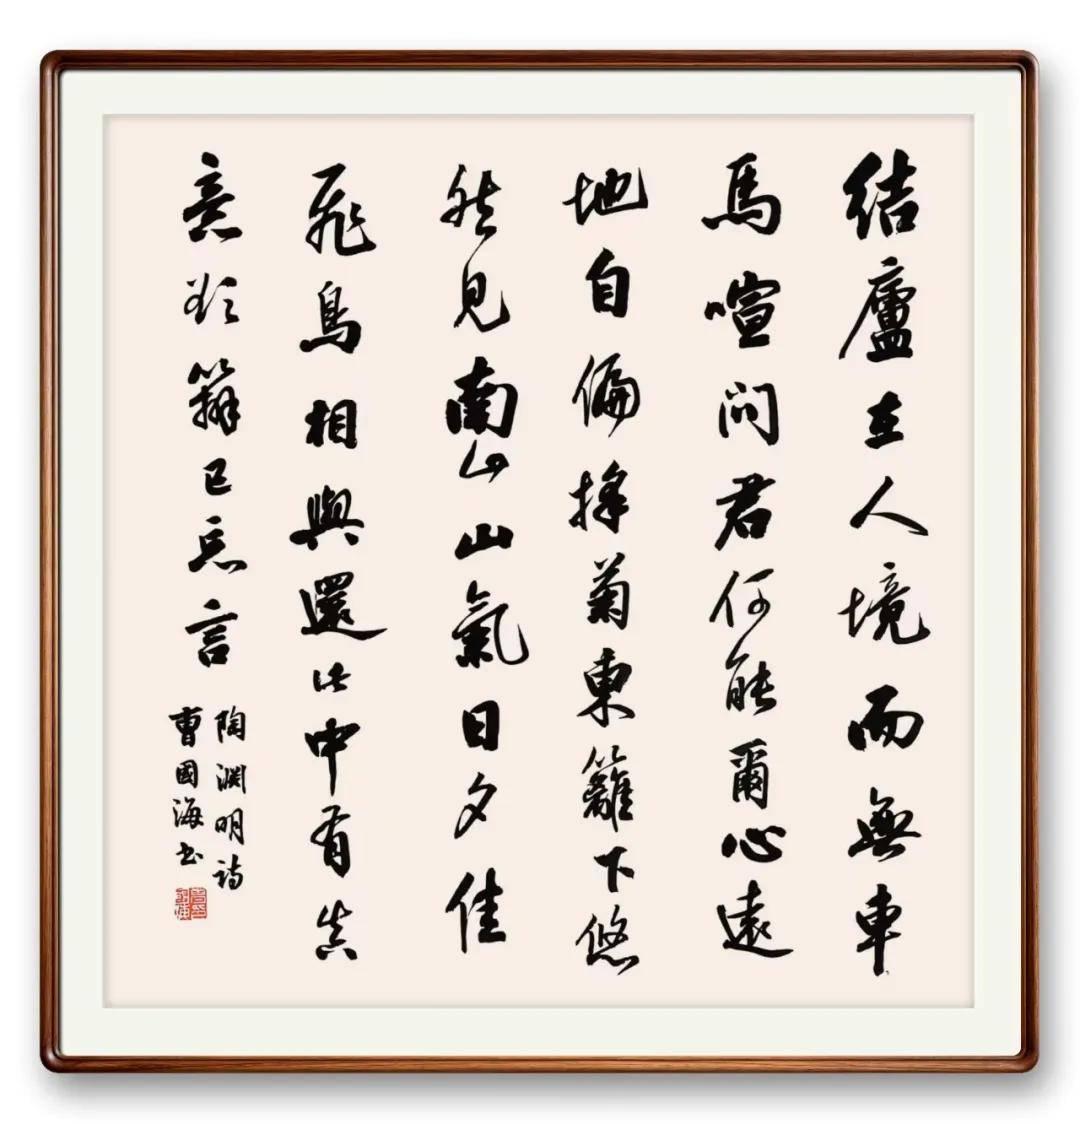 結廬在人境而無車
馬喧問君何能爾心遠
地自偏採菊東籬下悠
然見南山山氣日夕佳
飛鳥相與還此中有真
意欲辨已忘言
陶淵明詩
曹國海书